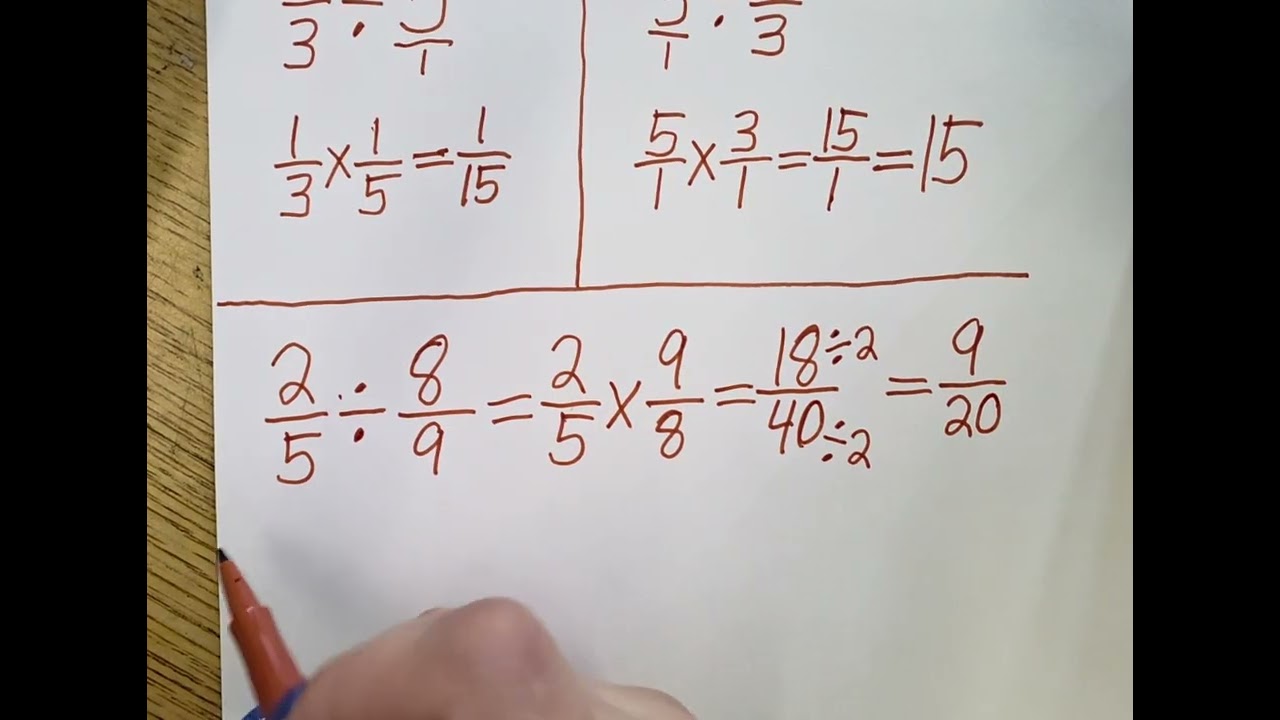 1/3 × 1/5 = 1/15
5/1 × 3/1 = 15/1 = 15
2/5 ÷ 8/9 = 2/5 × 9/8 = 18÷2/40÷2 = 9/20